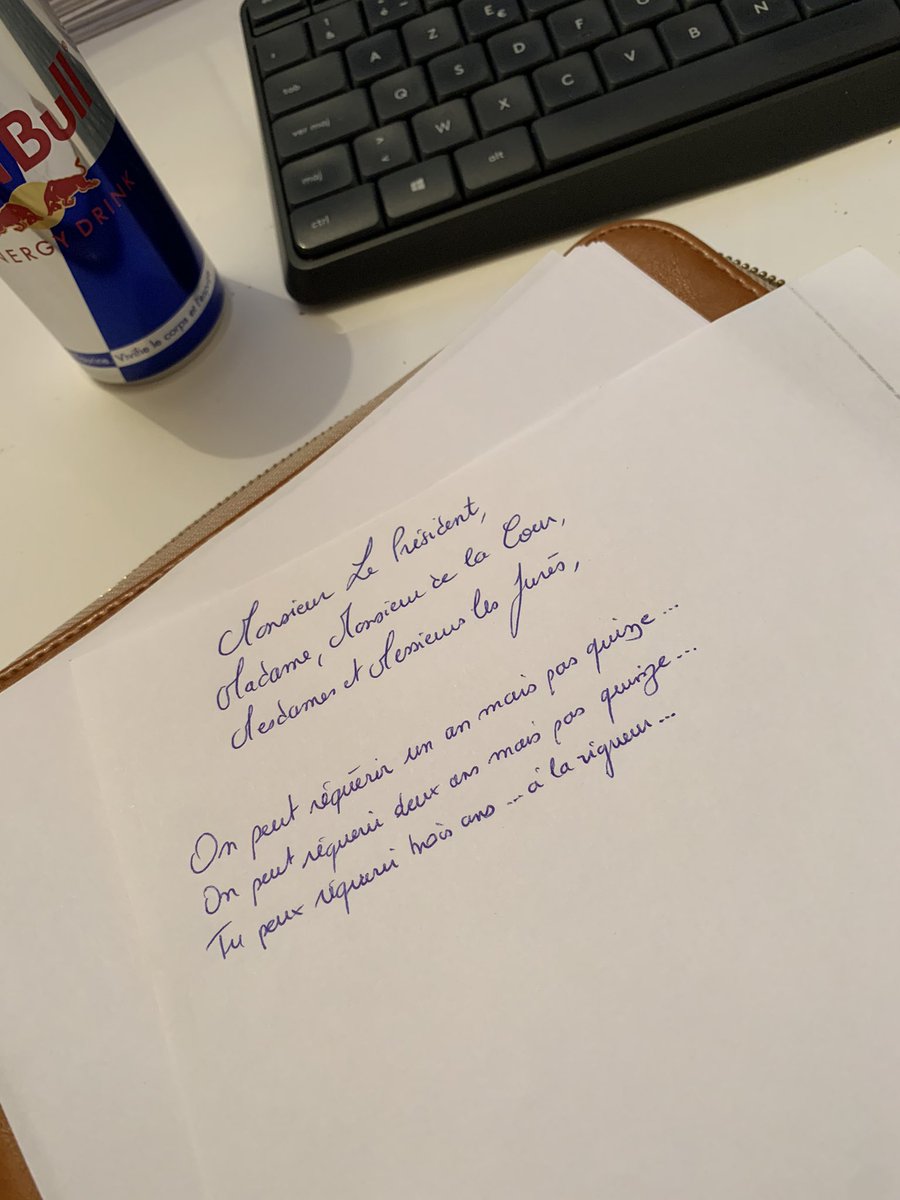 Bull
ENERGY DRINK
Vivifie le corps et l'esprit
E €
A Z
tab Q S D F G
ver maj W X C V B N
> <
maj alt
ctrl
Monsieur Le Président,
Madame, Monsieur de la Cour,
Mesdames et Messieurs les Jurés,
On peut réquérir un an mais pas quinze...
On peut réquerir deux ans mais pas quinze...
Tu peux réquerir trois ans... à la rigueur...